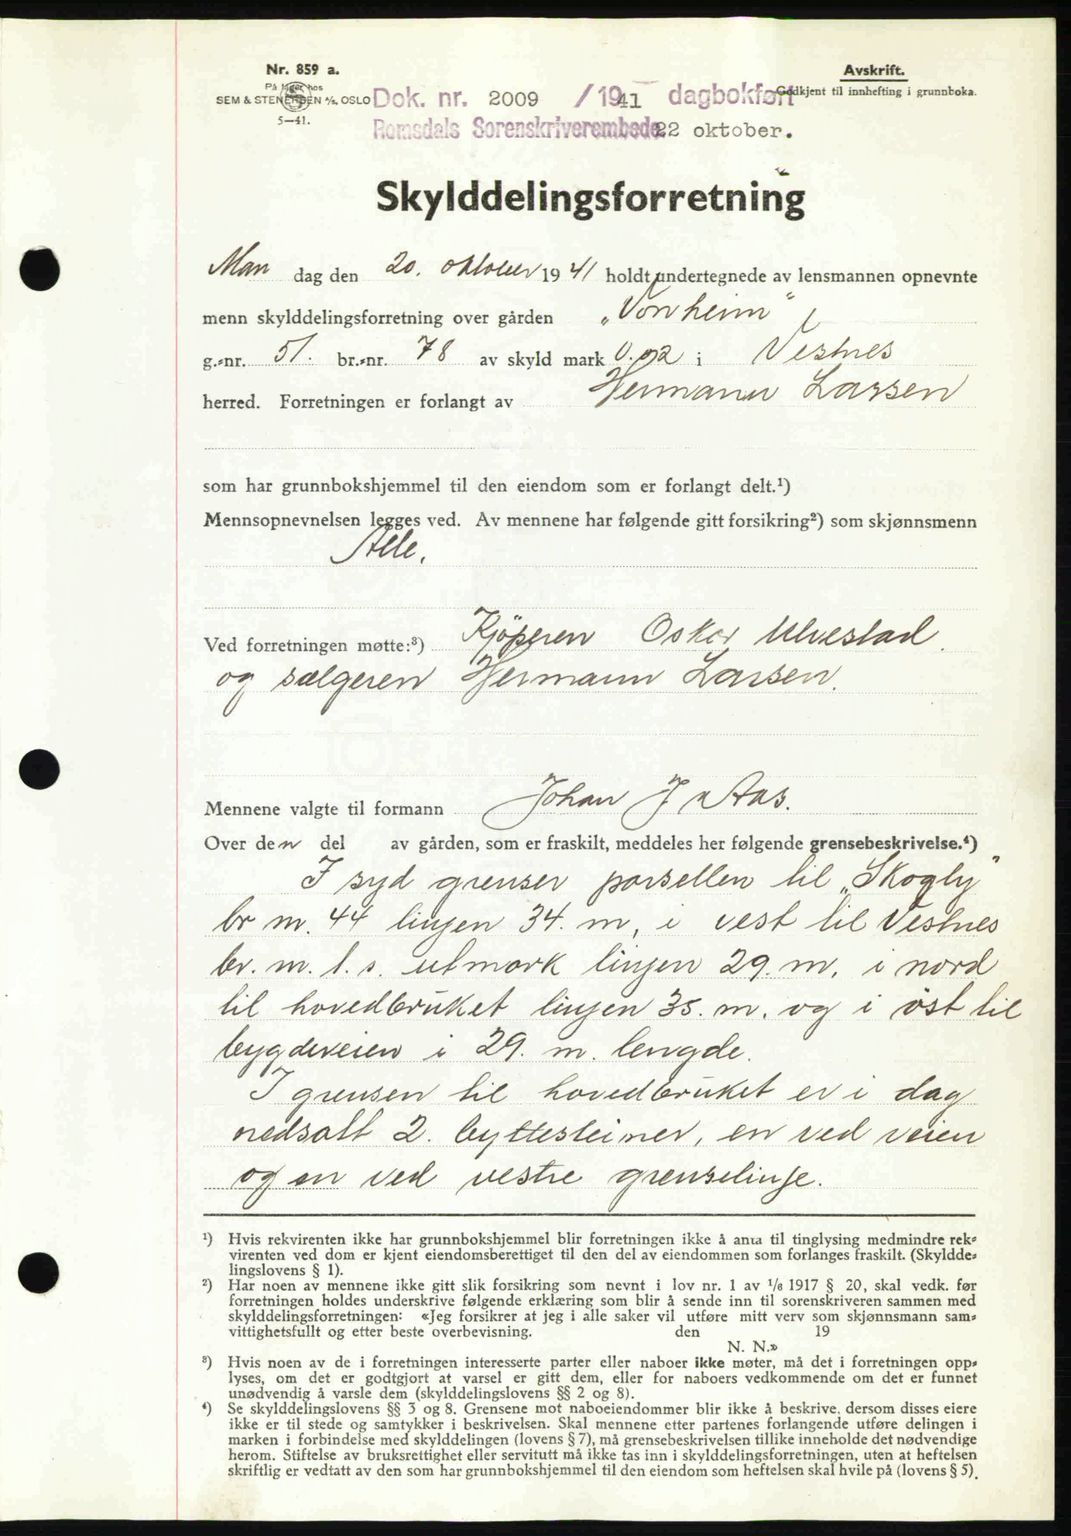 Nr. 859 a.
På lager hos
SEM & STENERSEN A/S, OSLO
5—41.
Avskrift.
Godkjent til innhefting i grunnboka.
Dok. nr. 2009 /1941 dagbokført
Romsdals Sorenskriverembede 22 oktober.
Skylddelingsforretning
Man dag den 20. oktober 1941 holdt undertegnede av lensmannen opnevnte
menn skylddelingsforretning over gården „Vonheim"
g.-nr. 51. br.-nr. 78 av skyld mark 0.02 i Vestnes
herred. Forretningen er forlangt av Hermann Larsen
som har grunnbokshjemmel til den eiendom som er forlangt delt.¹)
Mennsopnevnelsen legges ved. Av mennene har følgende gitt forsikring²) som skjønnsmenn
Alle.
Ved forretningen møtte:³) Kjöperen Oskar Ulvestad.
og sælgeren Hermann Larsen.
Mennene valgte til formann Johan J Aas.
Over den del av gården, som er fraskilt, meddeles her følgende grensebeskrivelse.⁴)
I syd grenser parsellen til „Skogly"
br nr. 44 linjen 34. m, i vest til Vestnes
br. nr. 1. s. utmark linjen 29. m. i nord
til hovedbruket linjen 35. m. og i öst til
bygdeveien i 29. m. lengde.
I grensen til hovedbruket er i dag
nedsatt 2. byttesteiner, en ved veien
og en ved vestre grenselinje.
¹) Hvis rekvirenten ikke har grunnbokshjemmel blir forretningen ikke å anta til tinglysing medmindre rek-
virenten ved dom er kjent eiendomsberettiget til den del av eiendommen som forlanges fraskilt. (Skyldde-
lingslovens § 1).
²) Har noen av mennene ikke gitt slik forsikring som nevnt i lov nr. 1 av 1/6 1917 § 20, skal vedk. før
forretningen holdes underskrive følgende erklæring som blir å sende inn til sorenskriveren sammen med
skylddelingsforretningen: «Jeg forsikrer at jeg i alle saker vil utføre mitt verv som skjønnsmann sam-
vittighetsfullt og etter beste overbevisning. den 19
N. N.»
³) Hvis noen av de i forretningen interesserte parter eller naboer ikke møter, må det i forretningen opp-
lyses, om det er godtgjort at varsel er gitt dem, eller for naboers vedkommende om det er funnet
unødvendig å varsle dem (skylddelingslovens §§ 2 og 8).
⁴) Se skylddelingslovens §§ 3 og 8. Grensene mot naboeiendommer blir ikke å beskrive, dersom disses eiere
ikke er til stede og samtykker i beskrivelsen. Skal mennene etter partenes forlangende utføre delingen i
marken i forbindelse med skylddelingen (lovens § 7), må grensebeskrivelsen tillike inneholde det nødvendige
herom. Stiftelse av bruksrettighet eller servitutt må ikke tas inn i skylddelingsforretningen, uten at heftelsen
skriftlig er vedtatt av den som har grunnbokshjemmel til den eiendom som heftelsen skal hvile på (lovens § 5).